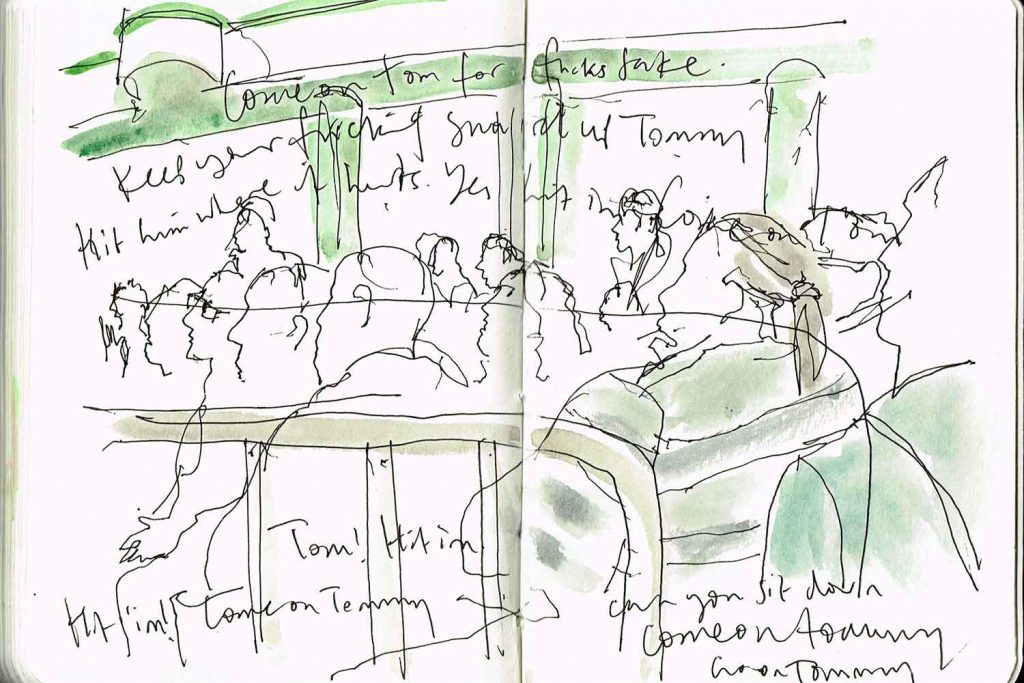 Come on Tom for fucks sake.
Keep your fucking guard up Tommy
Hit him where it hurts. Yes hit him
Come on
Tom! Hit im!
Hit 'im! Come on Tommy
Can you sit down
Come on Tommy
Go on Tommy